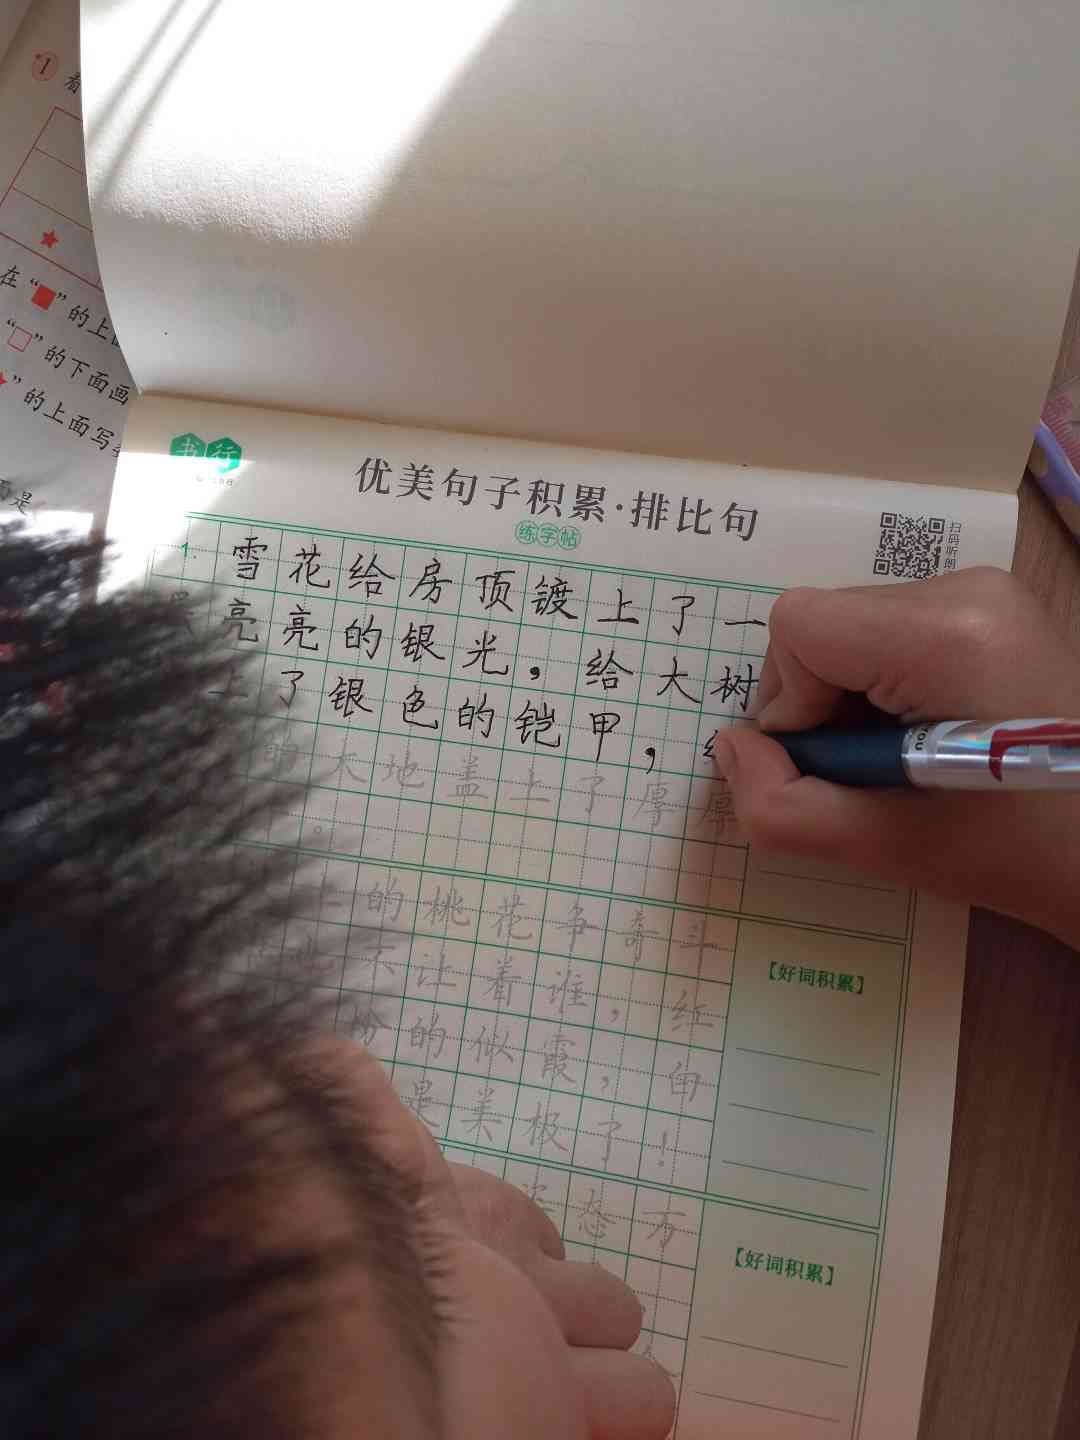 1 看
在“■”的上面
“□”的下面画
”的上面写
书行
优美句子积累·排比句
练字帖
扫码听朗
1. 雪花给房顶镀上了一
亮亮的银光，给大树
上了银色的铠甲，给
的大地盖上了厚厚
。
上的桃花争奇斗
不让着谁，红
粉的似霞，白
是美极了！
【好词积累】
姿态万
【好词积累】
YOU